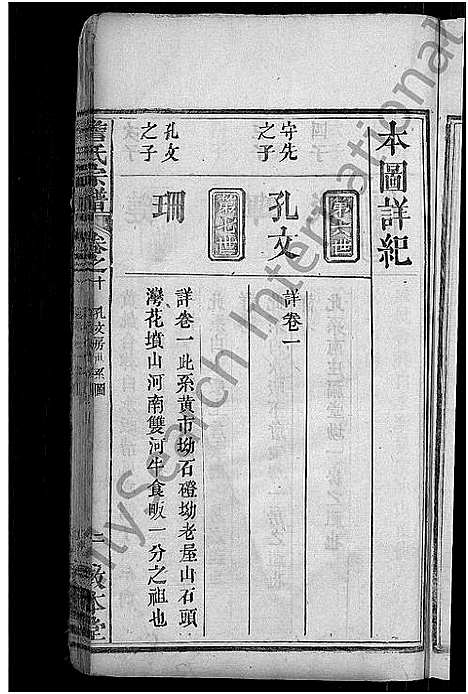 本圖詳紀
第六世
守先
之子
孔文
詳卷一
第七世
孔文
之子
珊
詳卷一此系黃市坳石磴坳老屋山石頭
灣花墳山河南雙河牛食畈一分之祖也
詹氏宗譜
卷之十
孔文房世系圖
二
敦本堂
FamilySearch International